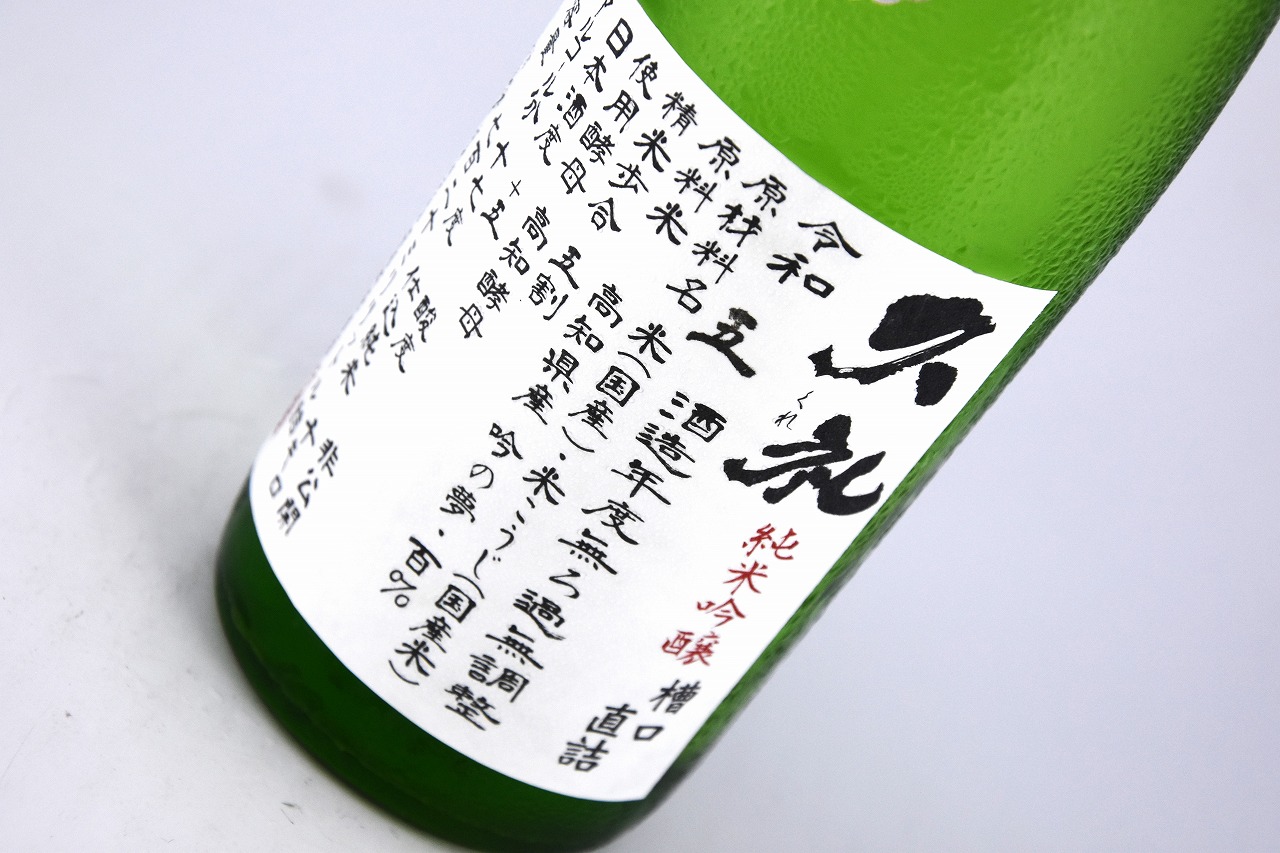 久礼
くれ
純米吟醸 槽口直詰
令和五酒造年度無ろ過無調整
原材料名 米(国産)・米こうじ(国産米)
原料米 高知県産・吟の夢・百%
精米歩合 五割
使用酵母 高知酵母
日本酒度 十五 酸度 非公開
アルコール分 十七度 仕込